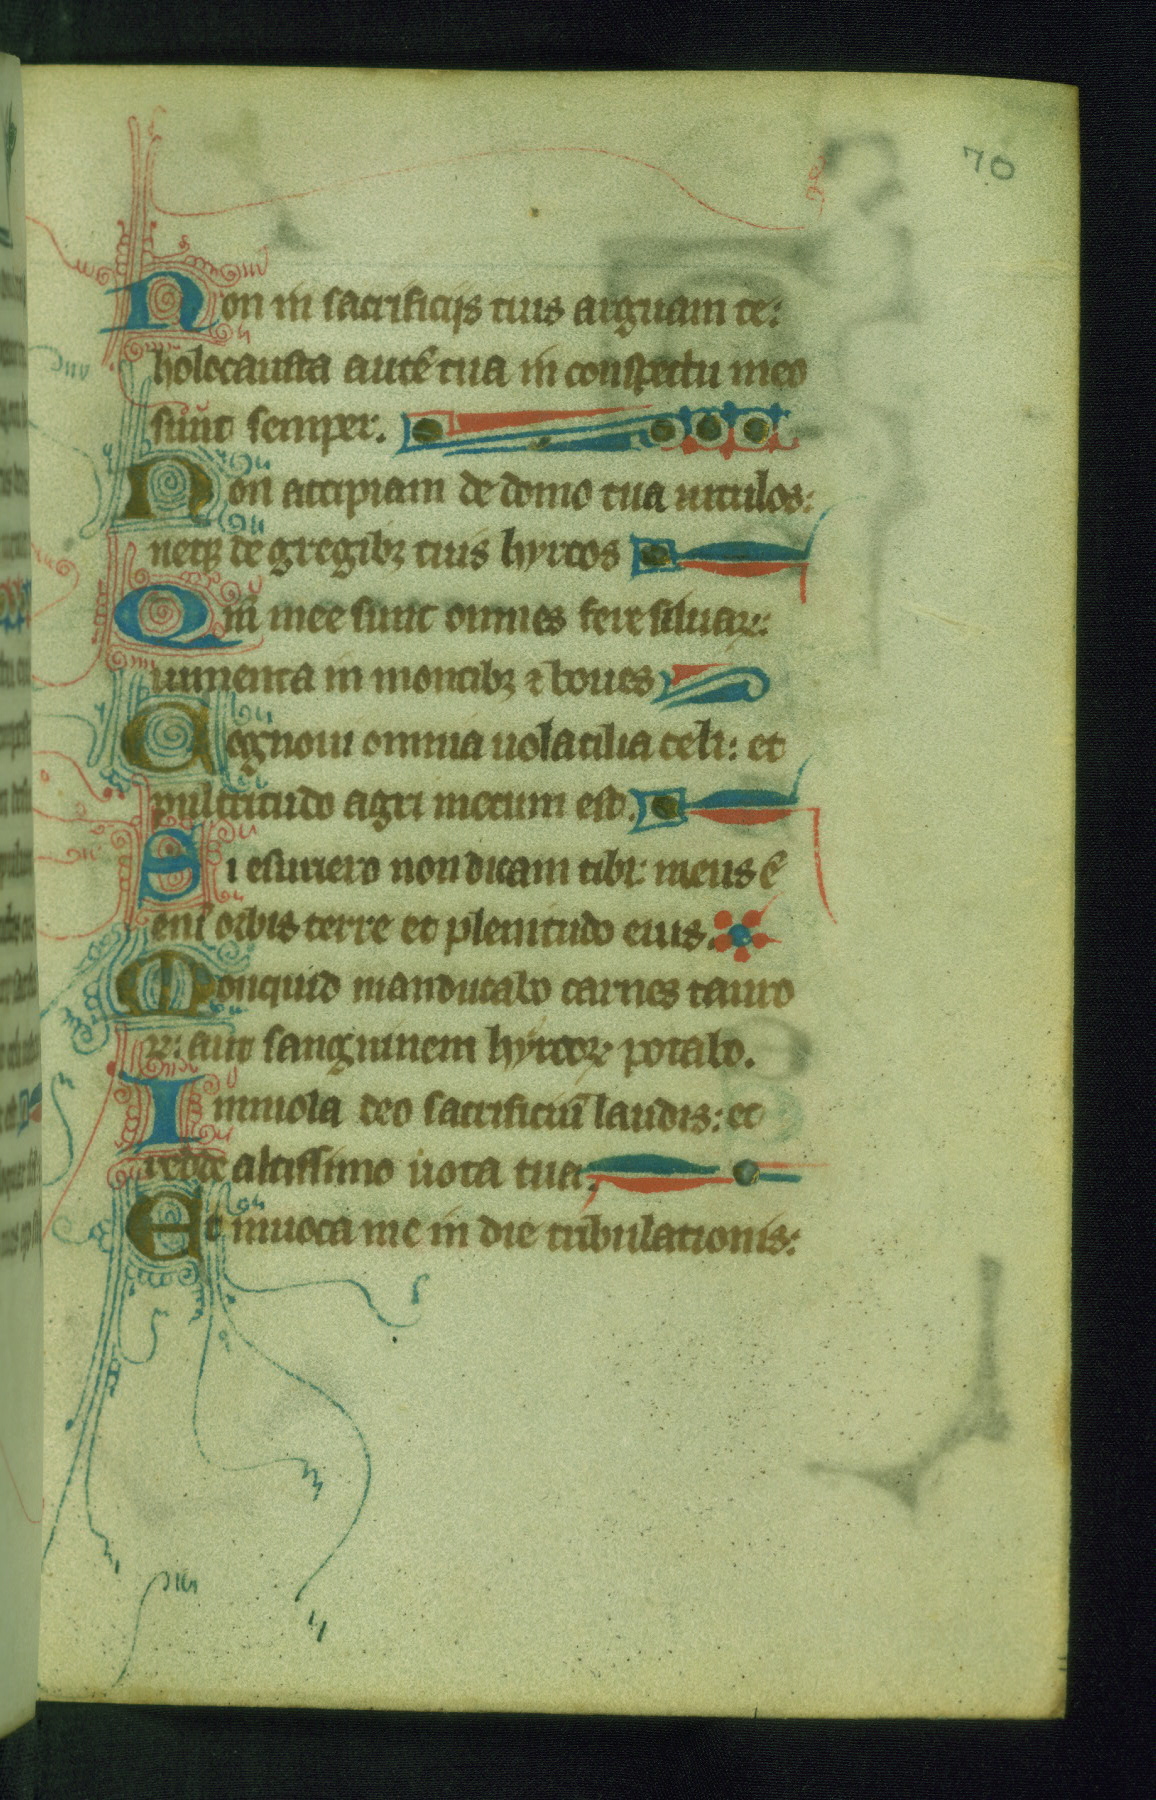 70
Non in sacrificijs tuis arguam te:
holocausta autē tua in conspectu meo
sunt semper.
Non accipiam de domo tua uitulos:
neqꝫ de gregibꝫ tuis hyrcos
Qm̄ mee sunt omnes fere siluaꝝ:
iumenta in montibꝫ ⁊ boues
Cognoui omnia uolatilia celi: et
pulcritudo agri mecum est.
Si esuriero non dicam tibi: meus ē
enī orbis terre et plenitudo eius.
Nonquid manducabo carnes tauro
ꝝ: aut sanguinem hyrcoꝝ potabo.
Immola deo sacrificiū laudis: et
redde altissimo uota tua.
Et inuoca me in die tribulationis: